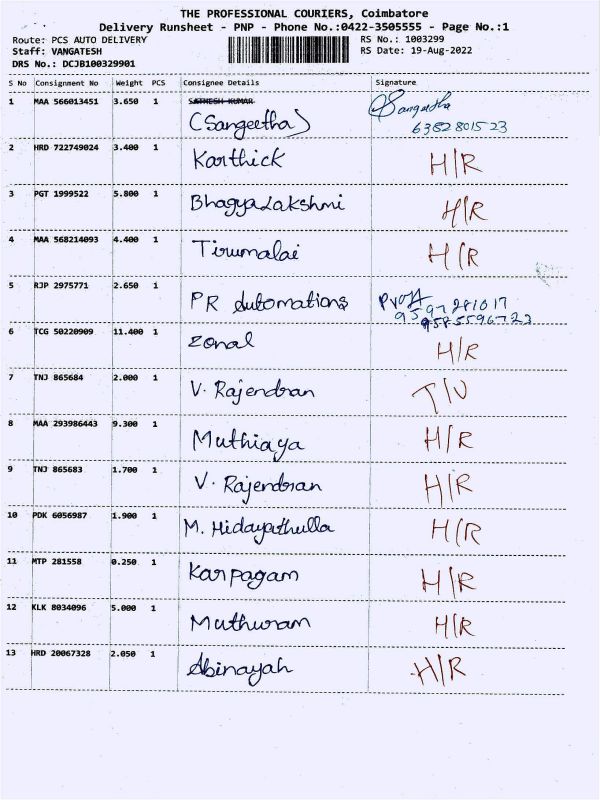 THE PROFESSIONAL COURIERS, Coimbatore
Delivery Runsheet - PNP - Phone No.:0422-3505555 - Page No.:1
Route: PCS AUTO DELIVERY RS No.: 1003299
Staff: VANGATESH RS Date: 19-Aug-2022
DRS No.: DCJB100329901
S No Consignment No Weight PCS Consignee Details Signature
1 MAA 566013451 3.650 1 SATHESH KUMAR Sangeetha
(Sangeetha) 6382801523
2 HRD 722749024 3.400 1 Karthick H/R
3 PGT 1999522 5.800 1 BhagyaLakshmi H/R
4 MAA 568214093 4.400 1 Tirumalai H/R
5 RJP 2975771 2.650 1 PR Automations
9597281017
9585596722
6 TCG 50220909 11.400 1 Zonal H/R
7 TNJ 865684 2.000 1 V. Rajendran T/U
8 MAA 293986443 9.300 1 Muthiaya H/R
9 TNJ 865683 1.700 1 V. Rajendran H/R
10 PDK 6056987 1.900 1 M. Hidayathulla H/R
11 MTP 281558 0.250 1 Karpagam H/R
12 KLK 8034096 5.000 1 Muthuram H/R
13 HRD 20067328 2.050 1 Abinayah H/R